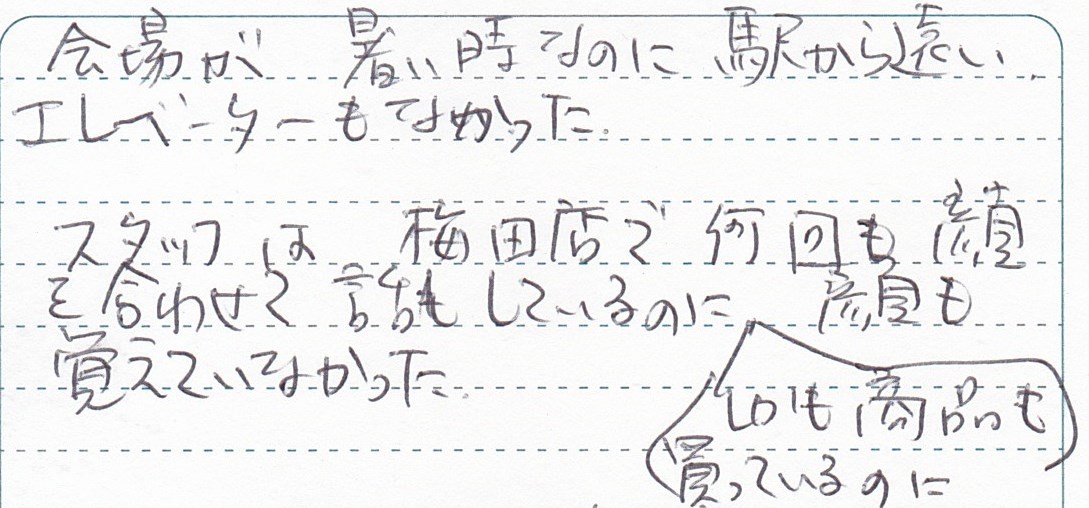 会場が 暑い時なのに 駅から遠い.
エレベーターもなかった.
スタッフは 梅田店で 何回も 顔
を合わせて 話もしているのに 顔も
覚えていなかった.
しかも商品も
買っているのに